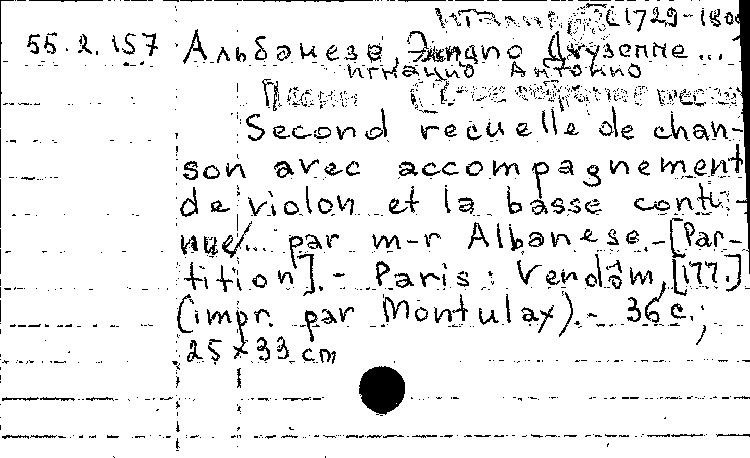 Италия (1729-180
55.2.157 Альбанезе, Эгидио Джузеппе...
Игнацио Антонио
Песни (2-ое собрание песен
Second recuelle de chan-
son avec accompagnement
de violon et la basse conti-
nue/... par m-r Albanese.-[Par-
tition].- Paris: Vendôm, [177.]
(impr. par Montulax).- 36 c.;
25×33 cm